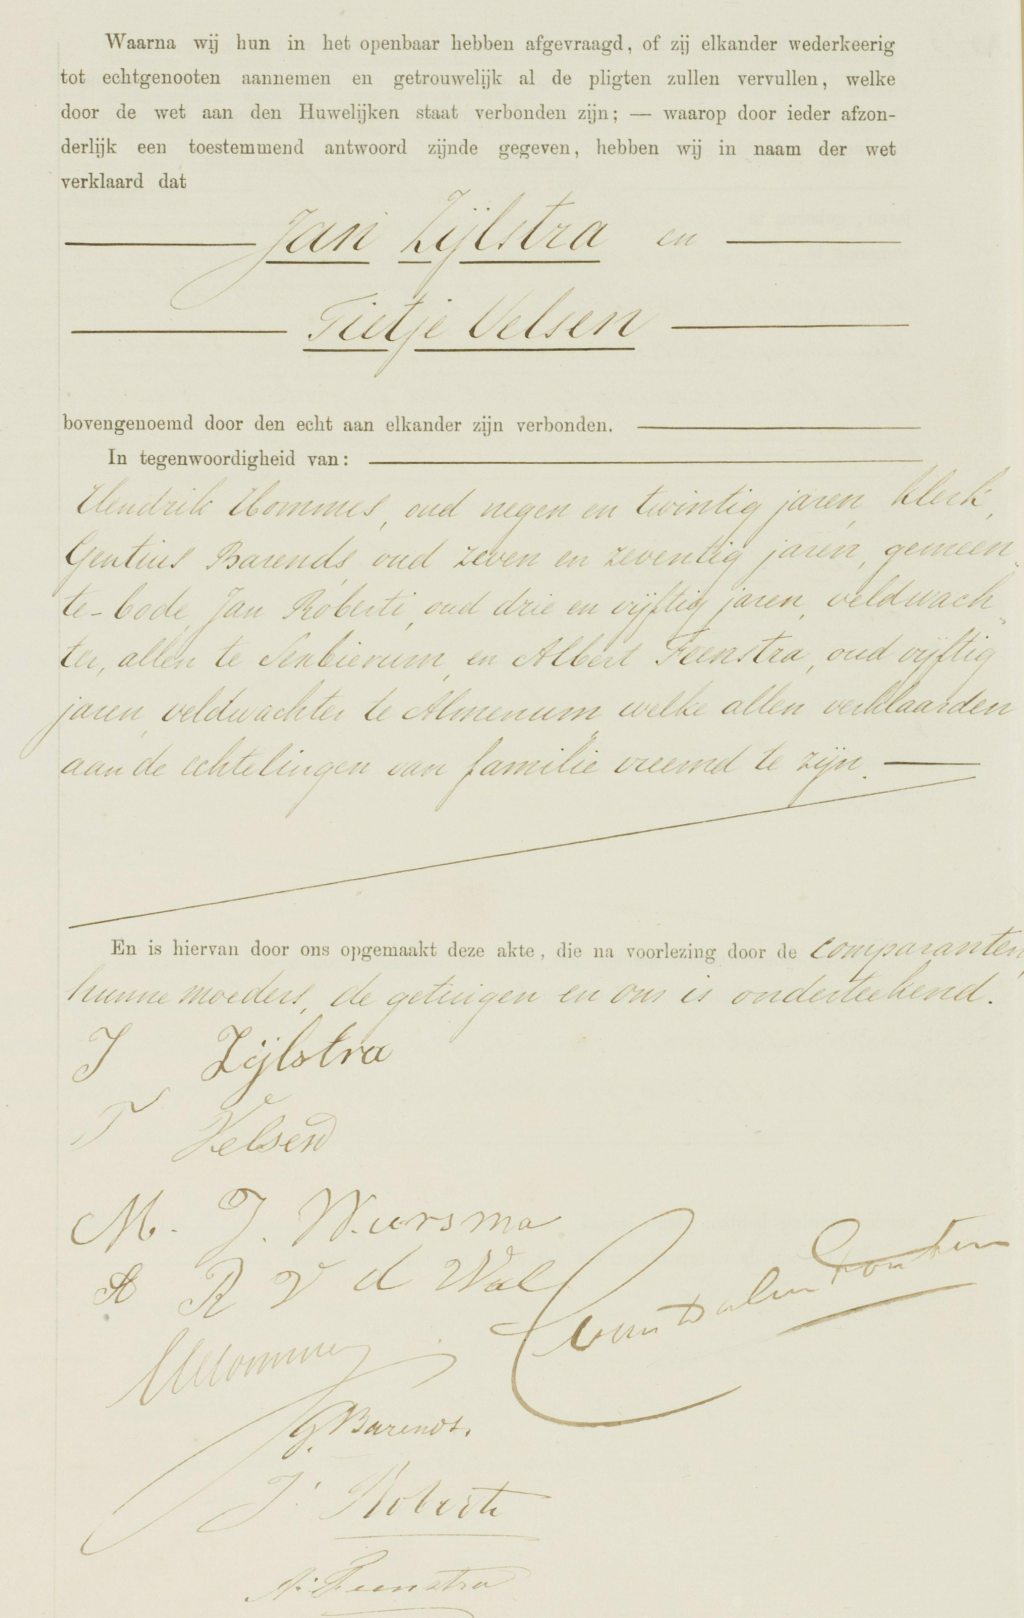 Waarna wij hun in het openbaar hebben afgevraagd, of zij elkander wederkeerig
tot echtgenooten aannemen en getrouwelijk al de pligten zullen vervullen, welke
door de wet aan den Huwelijken staat verbonden zijn; — waarop door ieder afzon-
derlijk een toestemmend antwoord zijnde gegeven, hebben wij in naam der wet
verklaard dat
Jan Zijlstra en
Tietje Velsen
bovengenoemd door den echt aan elkander zijn verbonden.
In tegenwoordigheid van:
Hendrik Hommes, oud negen en twintig jaren, klerk,
Gentius Barends, oud zeven en zeventig jaren, gemeen„
te-bode, Jan Roberti, oud drie en vijftig jaren, veldwach„
ter, allen te Sexbierum, en Albert Feenstra, oud vijftig
jaren, veldwachter te Almenum, welke allen verklaarden
aan de echtelingen van familie vreemd te zijn.
En is hiervan door ons opgemaakt deze akte, die na voorlezing door de comparanten,
hunne moeders, de getuigen en ons is onderteekend.
J Zijlstra
T Velsen
M. J. Wiersma
A R V d Wal
HHommes
G. Barends.
J. Roberti
A. Feenstra